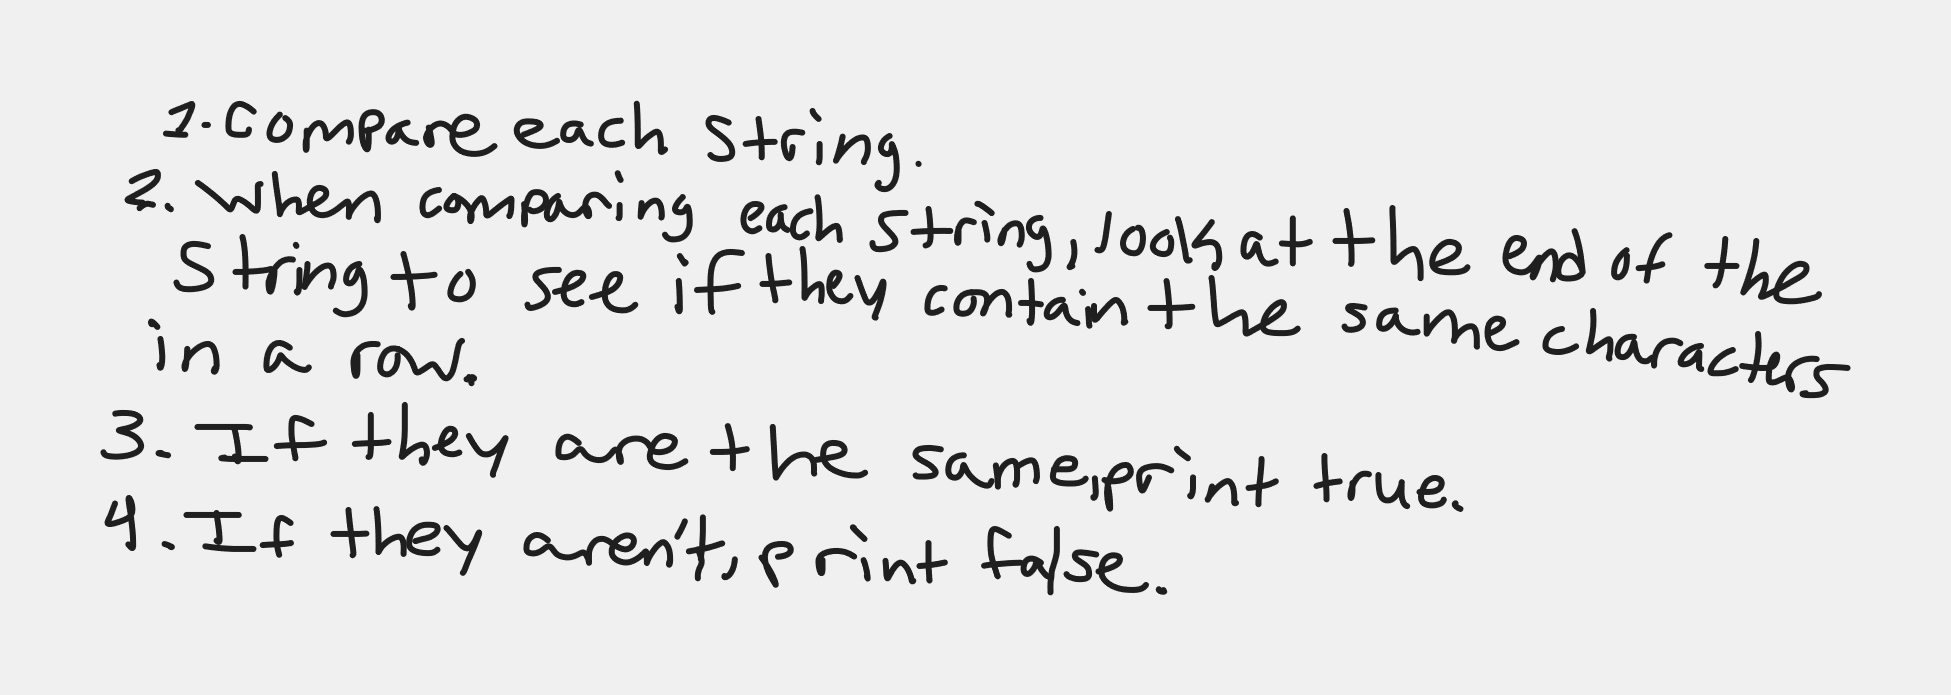 1. Compare each string.
2. When comparing each string, look at the end of the
string to see if they contain the same characters
in a row.
3. If they are the same, print true.
4. If they aren't, print false.